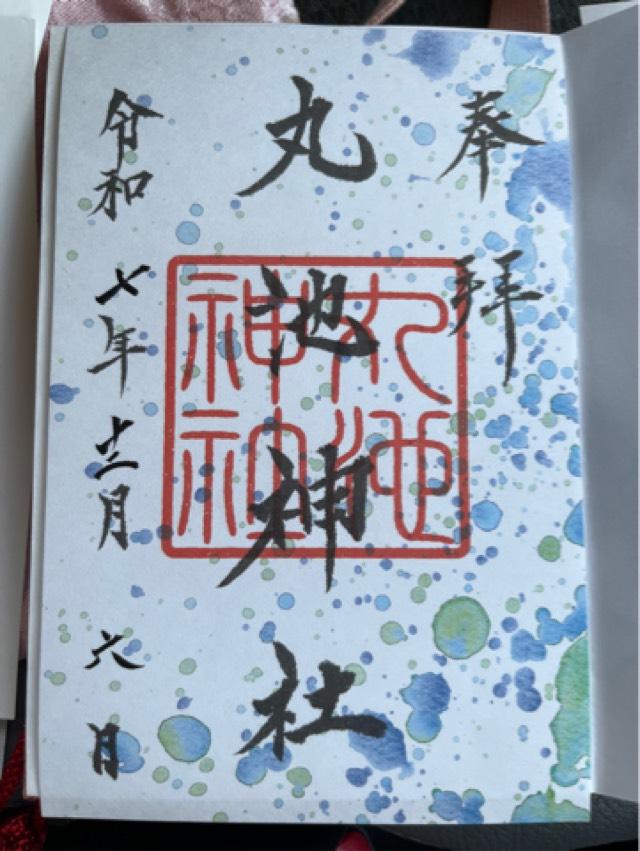 奉拝
丸池神社
丸池
神社
令和七年十二月六日